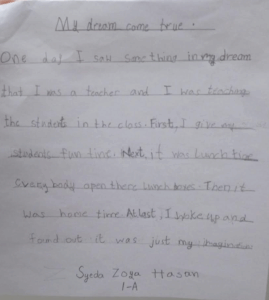 My dream come true.
One day I saw something in my dream
that I was a teacher and I was teaching
the student in the class. First, I give my
students fun time. Next, it was lunch time
Everybody open there lunch boxes. Then it
was home time. At last, I woke up and
found out it was just my imagination
Syeda Zoya Hasan
1-A